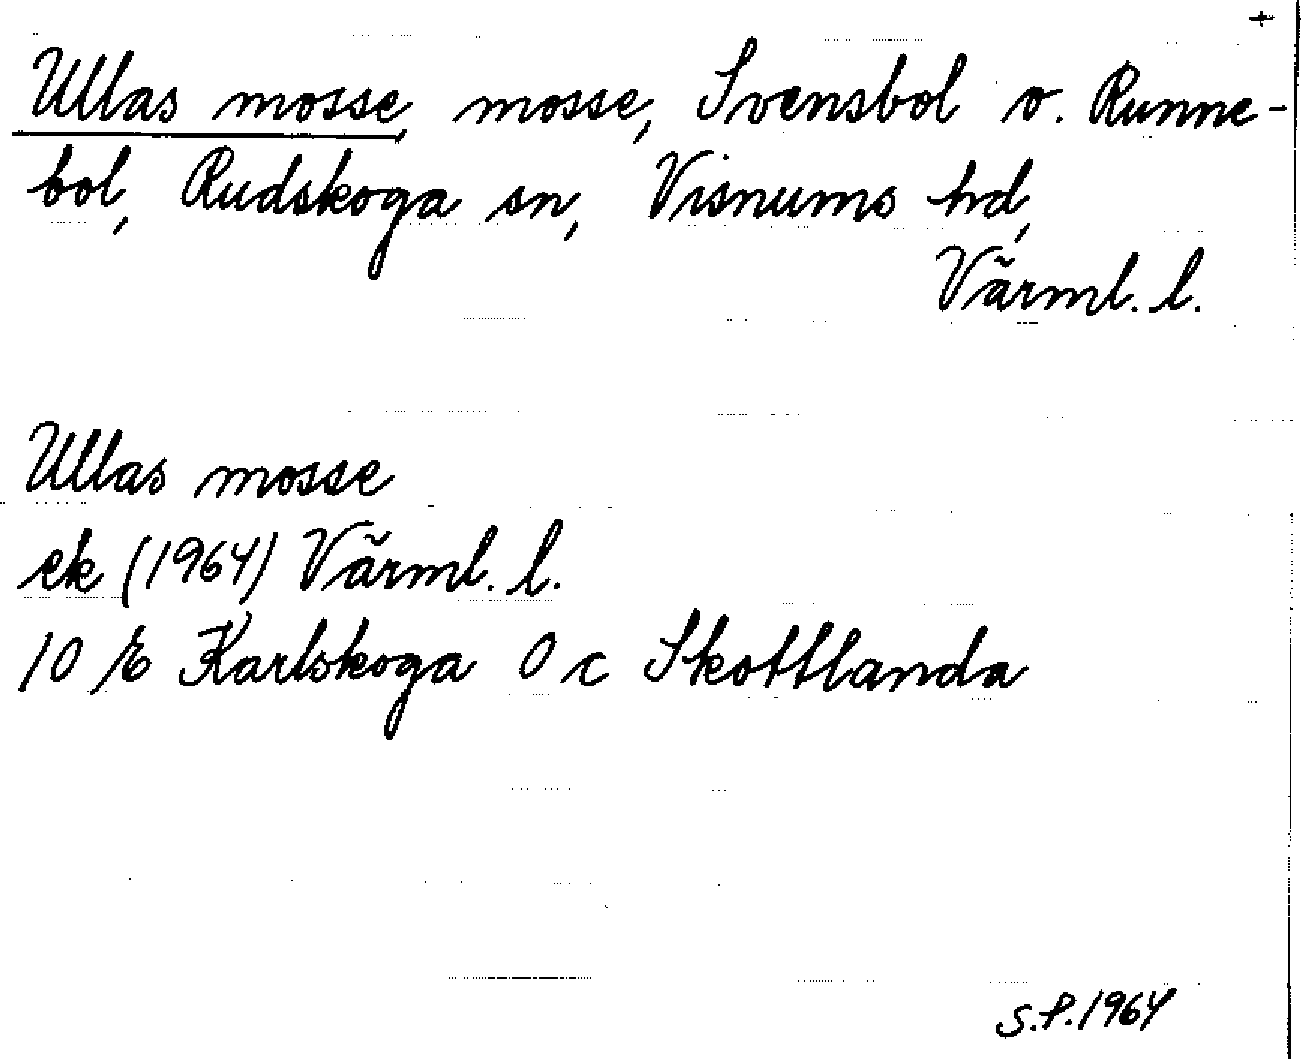 +
Ullas mosse, mosse, Svensbol o. Runne-
bol, Rudskoga sn, Visnums hd,
Värml. l.
Ullas mosse
ek (1964) Värml. l.
10 E Karlskoga 0 c Skottlanda
S.P. 1964